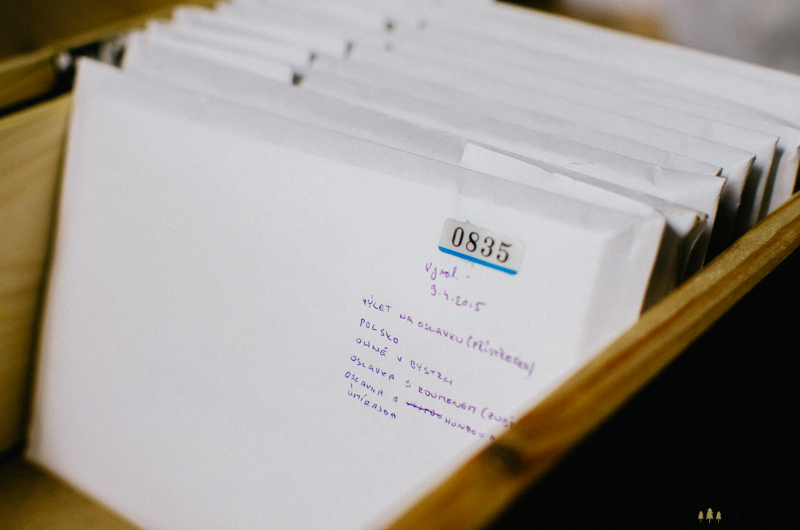 0835
Vyvol. -
9.4.2015
VÝLET NA OSLAVKU (PŘÍSTŘEŠEK)
POLSKO
OHNĚ V BYSTRCI
OSLAVKA S ROUMENEM
OSLAVKA S
UMÍRAJDA